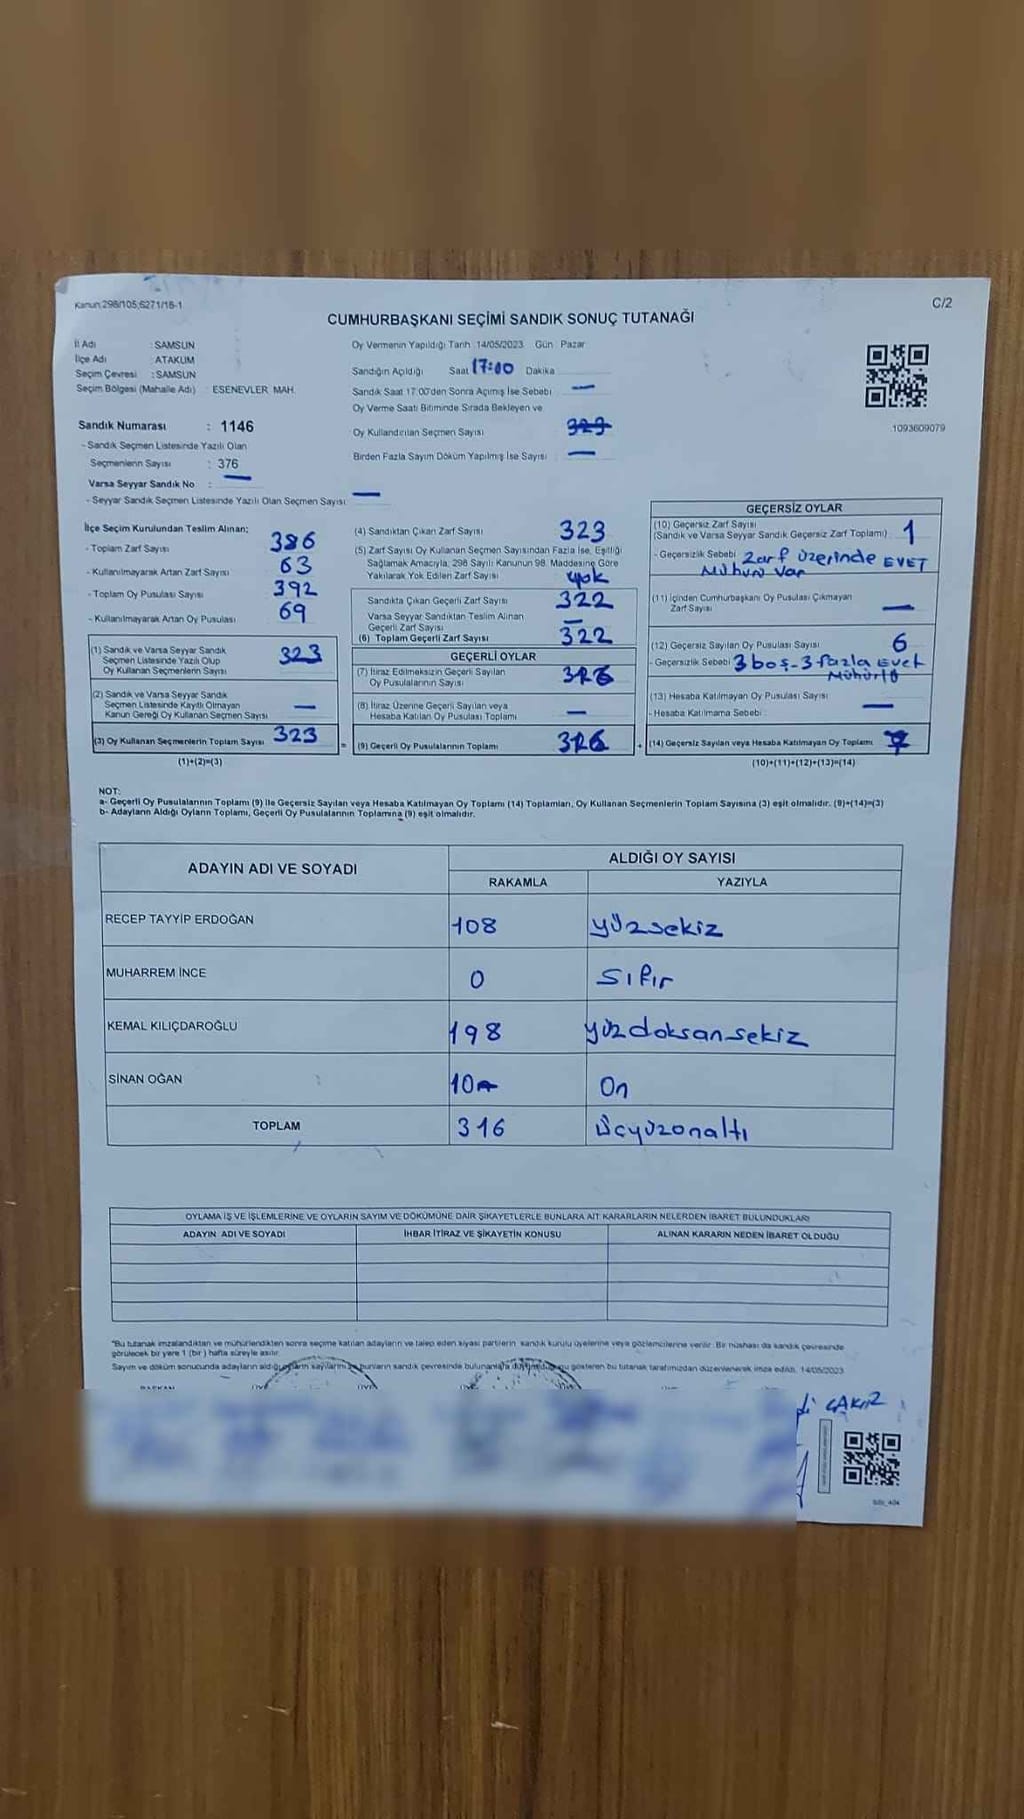 Kanun:298/105;6271/18-1
C/2
CUMHURBAŞKANI SEÇİMİ SANDIK SONUÇ TUTANAĞI
İl Adı : SAMSUN
İlçe Adı : ATAKUM
Seçim Çevresi : SAMSUN
Seçim Bölgesi (Mahalle Adı) : ESENEVLER MAH.
Sandık Numarası : 1146
- Sandık Seçmen Listesinde Yazılı Olan
Seçmenlerin Sayısı : 376
Varsa Seyyar Sandık No : —
- Seyyar Sandık Seçmen Listesinde Yazılı Olan Seçmen Sayısı: —
Oy Vermenin Yapıldığı Tarih :14/05/2023 Gün : Pazar
Sandığın Açıldığı Saat 17:00 Dakika
Sandık Saat 17:00'den Sonra Açımış İse Sebebi —
Oy Verme Saati Bitiminde Sırada Bekleyen ve
Oy Kullandırılan Seçmen Sayısı 323
Birden Fazla Sayım Döküm Yapılmış İse Sayısı —
1093609079
İlçe Seçim Kurulundan Teslim Alınan;
- Toplam Zarf Sayısı 386
- Kullanılmayarak Artan Zarf Sayısı 63
- Toplam Oy Pusulası Sayısı 392
- Kullanılmayarak Artan Oy Pusulası 69
(1) Sandık ve Varsa Seyyar Sandık
Seçmen Listesinde Yazılı Olup
Oy Kullanan Seçmenlerin Sayısı 323
(2) Sandık ve Varsa Seyyar Sandık
Seçmen Listesinde Kayıtlı Olmayan
Kanun Gereği Oy Kullanan Seçmen Sayısı —
(3) Oy Kullanan Seçmenlerin Toplam Sayısı 323
(1)+(2)=(3)
(4) Sandıktan Çıkan Zarf Sayısı 323
(5) Zarf Sayısı Oy Kullanan Seçmen Sayısından Fazla İse, Eşitliği
Sağlamak Amacıyla, 298 Sayılı Kanunun 98. Maddesine Göre
Yakılarak Yok Edilen Zarf Sayısı yok
Sandıkta Çıkan Geçerli Zarf Sayısı 322
Varsa Seyyar Sandıktan Teslim Alınan
Geçerli Zarf Sayısı —
(6) Toplam Geçerli Zarf Sayısı 322
GEÇERLİ OYLAR
(7) İtiraz Edilmeksizin Geçerli Sayılan
Oy Pusulalarının Sayısı 316
(8) İtiraz Üzerine Geçerli Sayılan veya
Hesaba Katılan Oy Pusulası Toplamı —
= (9) Geçerli Oy Pusulalarının Toplamı 316 +
GEÇERSİZ OYLAR
(10) Geçersiz Zarf Sayısı
(Sandık ve Varsa Seyyar Sandık Geçersiz Zarf Toplamı) 1
- Geçersizlik Sebebi Zarf üzerinde EVET
Mührü var
(11) İçinden Cumhurbaşkanı Oy Pusulası Çıkmayan
Zarf Sayısı —
(12) Geçersiz Sayılan Oy Pusulası Sayısı 6
- Geçersizlik Sebebi 3 boş - 3 fazla Evet
Mühürlü
(13) Hesaba Katılmayan Oy Pusulası Sayısı —
- Hesaba Katılmama Sebebi :
(14) Geçersiz Sayılan veya Hesaba Katılmayan Oy Toplamı 7
(10)+(11)+(12)+(13)=(14)
NOT:
a- Geçerli Oy Pusulalarının Toplamı (9) ile Geçersiz Sayılan veya Hesaba Katılmayan Oy Toplamı (14) Toplamları, Oy Kullanan Seçmenlerin Toplam Sayısına (3) eşit olmalıdır. (9)+(14)=(3)
b- Adayların Aldığı Oyların Toplamı, Geçerli Oy Pusulalarının Toplamına (9) eşit olmalıdır.
ADAYIN ADI VE SOYADI
ALDIĞI OY SAYISI
RAKAMLA YAZIYLA
RECEP TAYYİP ERDOĞAN 108 yüzsekiz
MUHARREM İNCE 0 Sıfır
KEMAL KILIÇDAROĞLU 198 yüzdoksansekiz
SİNAN OĞAN 10 On
TOPLAM 316 Üçyüzonaltı
OYLAMA İŞ VE İŞLEMLERİNE VE OYLARIN SAYIM VE DÖKÜMÜNE DAİR ŞİKAYETLERLE BUNLARA AİT KARARLARIN NELERDEN İBARET BULUNDUKLARI
ADAYIN ADI VE SOYADI İHBAR İTİRAZ VE ŞİKAYETİN KONUSU ALINAN KARARIN NEDEN İBARET OLDUĞU
"Bu tutanak imzalandıktan ve mühürlendikten sonra seçime katılan adayların ve talep eden siyasi partilerin sandık kurulu üyelerine veya gözlemcilerine verilir. Bir nüshası da sandık çevresinde
görülecek bir yere 1 (bir) hafta süreyle asılır.
Sayım ve döküm sonucunda adayların aldığı oyların sayılarını ve bunların sandık çevresinde bulunanlara gösteren bu tutanak tarafımızdan düzenlenerek imza edildi. 14/05/2023
BAŞKAN ÜYE ÜYE
ÇAKIR